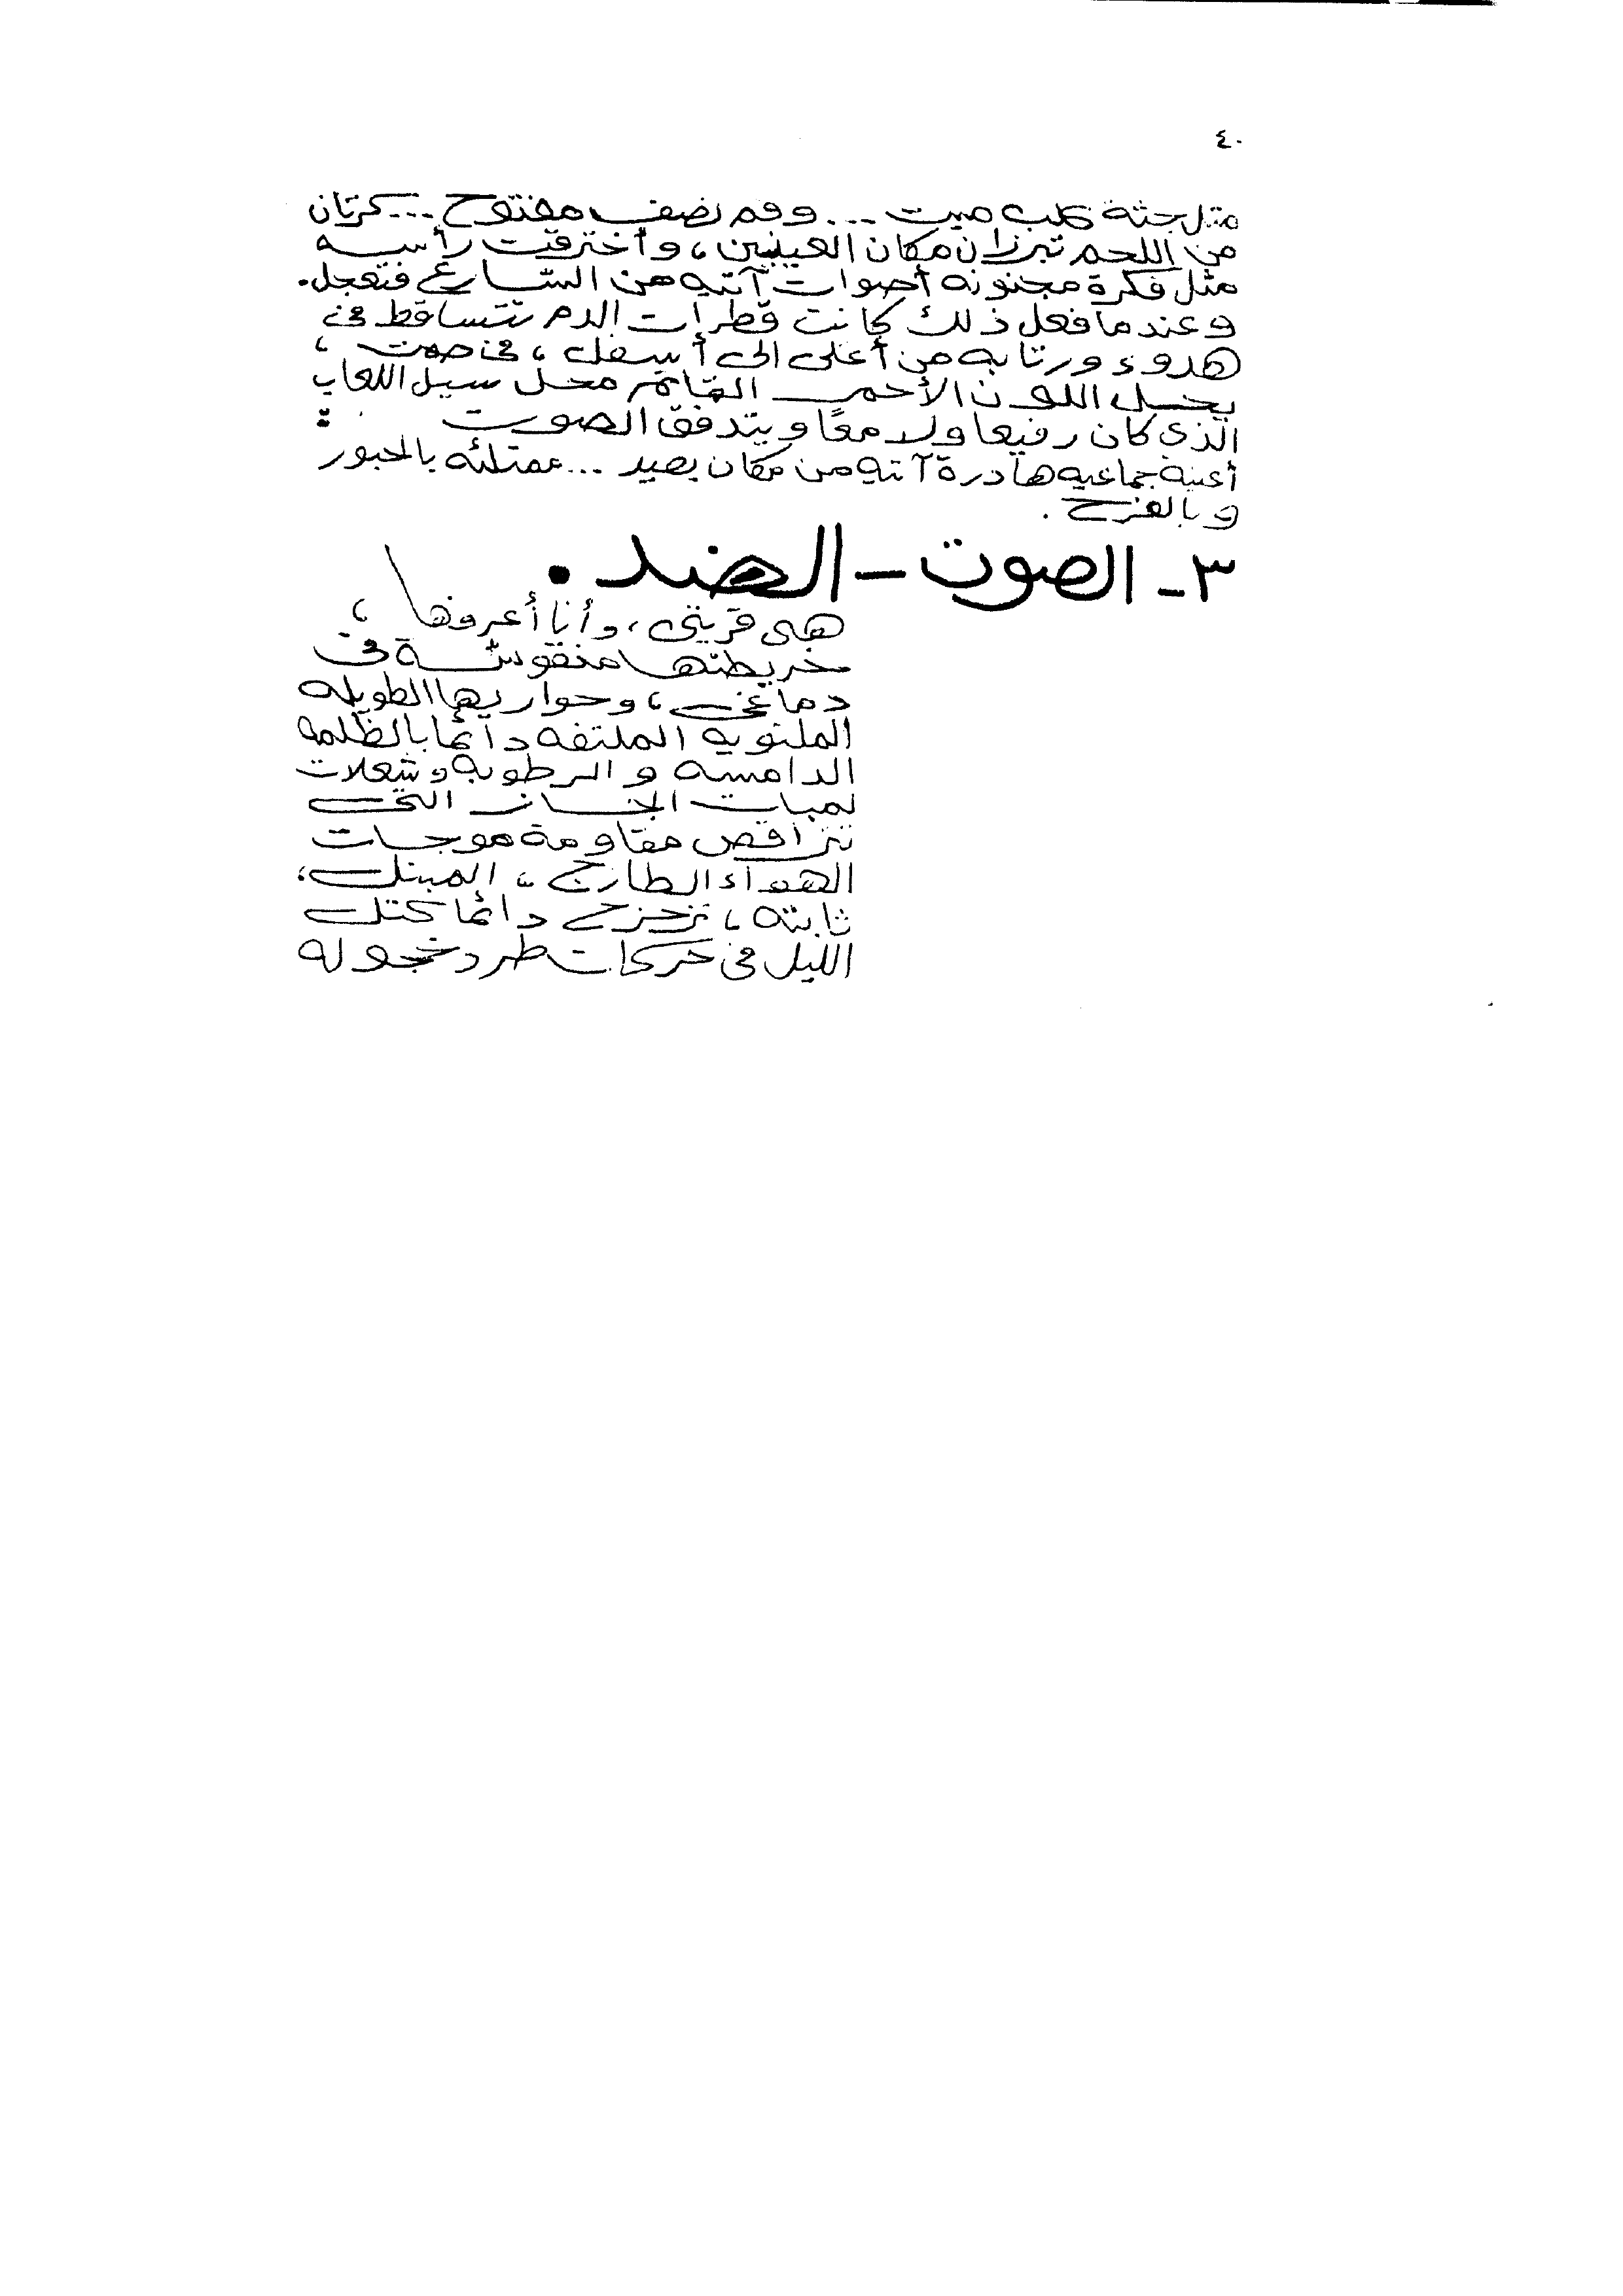 ٤٠
مثل جثة كلب ميت ... وفم نصف مفتوح ... كرتان
من اللحم تبرزان مكان العينين ، وأخترقت رأسه
مثل فكرة مجنونه أصوات آتيه من الشارع فتعجل .
وعندما فعل ذلك كانت قطرات الدم تتساقط فى
هدوء ورتابه من أعلى الى أسفل ، فى صمت ،
يحل اللون الأحمر القاتم محل سيل اللعاب
الذى كان رفيعا ولامعًا ويتدفق الصوت :
أغنية جماعيه هادرة آتيه من مكان بعيد ... ممتلئه بالحبور
وبالفرح .
٣ - الصوت - الضد .
هى قريتى ، وأنا أعرفها ،
خريطتها منقوشة فى
دماغى ، وحواريها الطويله
الملتويه الملتفه دائما بالظلمه
الدامسه والرطوبه وشعلات
لمبات الجاز التى
تتراقص مقاومة موجات
الهواء الطازج ، المبتل ،
ثابته ، تزحزح دائما كتل
الليل فى حركات طرد خجوله